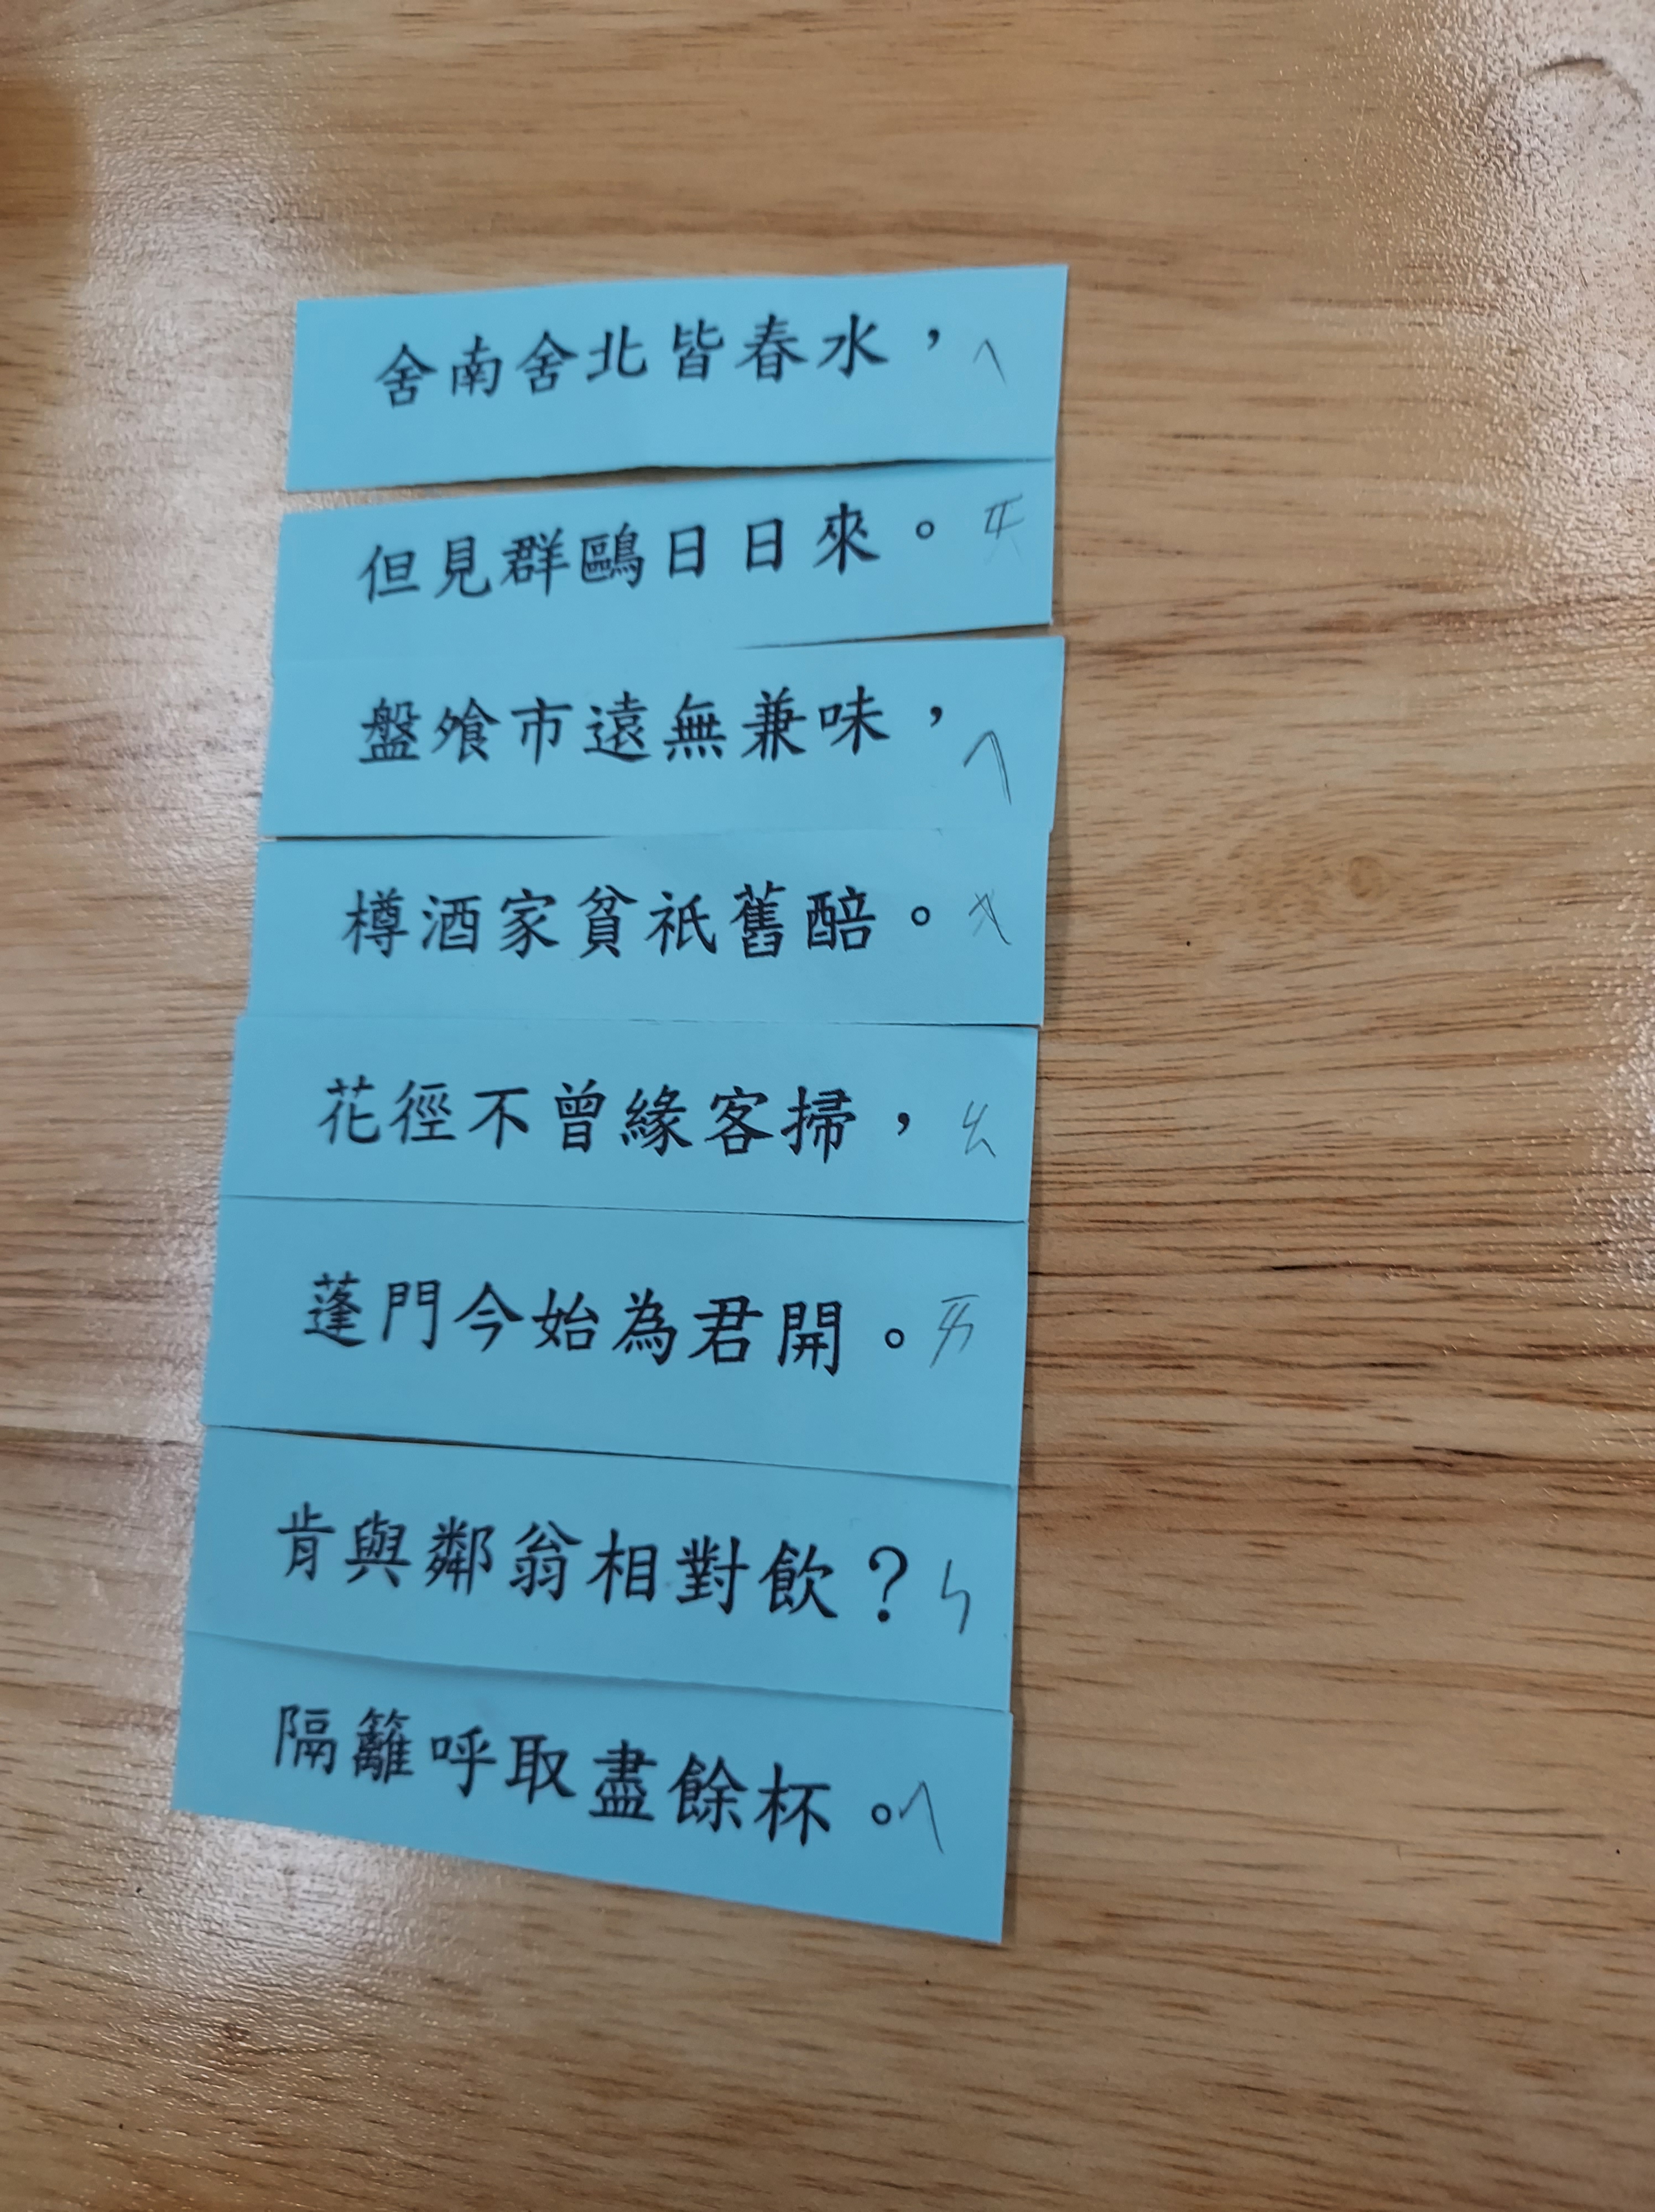 舍南舍北皆春水，ㄟ
但見群鷗日日來。ㄞ
盤飧市遠無兼味，ㄟ
樽酒家貧祇舊醅。ㄨ
花徑不曾緣客掃，ㄠ
蓬門今始為君開。ㄞ
肯與鄰翁相對飲？ㄣ
隔籬呼取盡餘杯。ㄟ